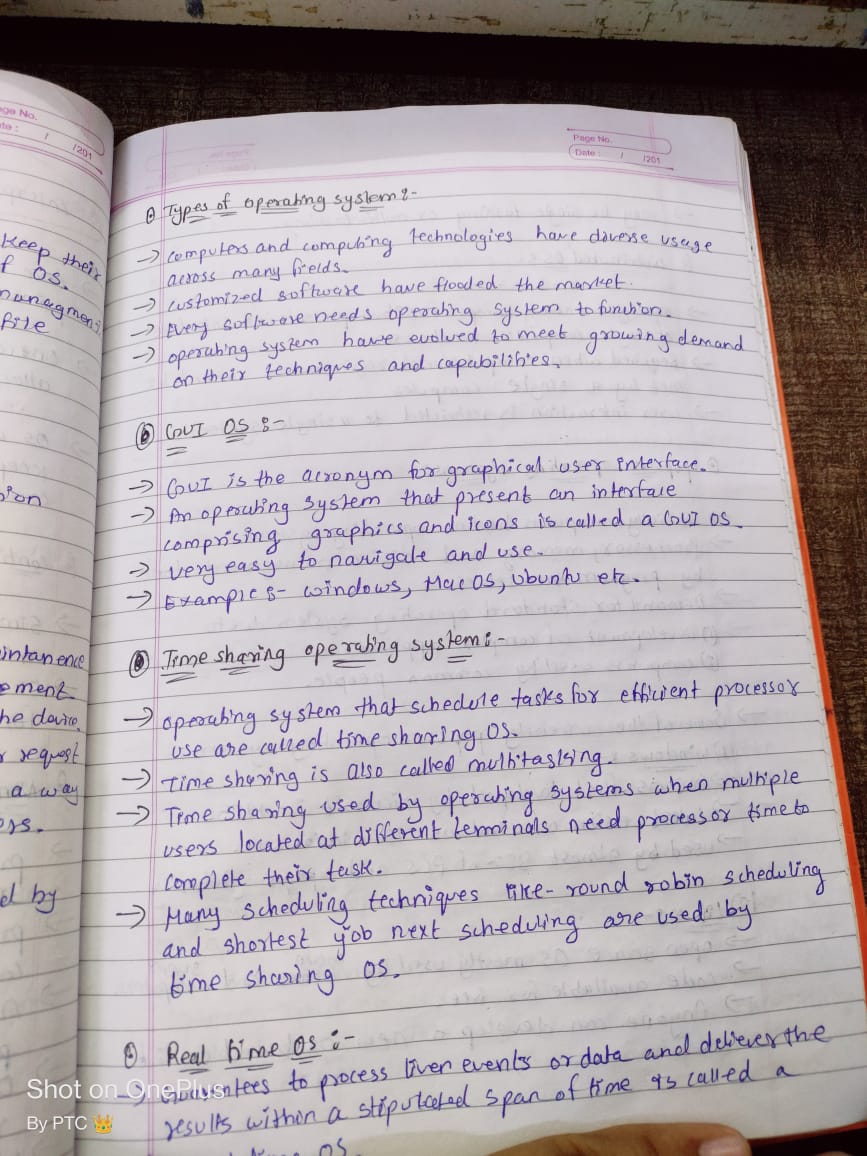 ge No.
te : / /201
Keep their
f OS.
managment
file
sion
intanence
ement.
he device.
r request
a way
ers.
ed by
Page No.
Date : / /201
Types of operating system :-
→ computers and computing technologies have diverse usage
across many fields.
→ customized software have flooded the market.
→ Every software needs operating system to function.
→ operating system have evolved to meet growing demand
on their techniques and capabilities.
GUI OS :-
→ GUI is the acronym for graphical user interface.
→ An operating system that present an interface
comprising graphics and icons is called a GUI OS.
→ very easy to navigate and use.
→ Example :- windows, Mac OS, Ubuntu etc.
Time sharing operating system :-
→ operating system that schedule tasks for efficient processor
use are called time sharing OS.
→ Time sharing is also called multitasking.
→ Time sharing used by operating systems when multiple
users located at different terminals need processor time to
complete their task.
→ Many scheduling techniques like- round robin scheduling
and shortest job next scheduling are used by
time sharing OS.
Real time OS :-
→ to process events or data and deliever the
results within a stipulated span of time is called a
OS
Shot on OnePlus
By PTC 👑